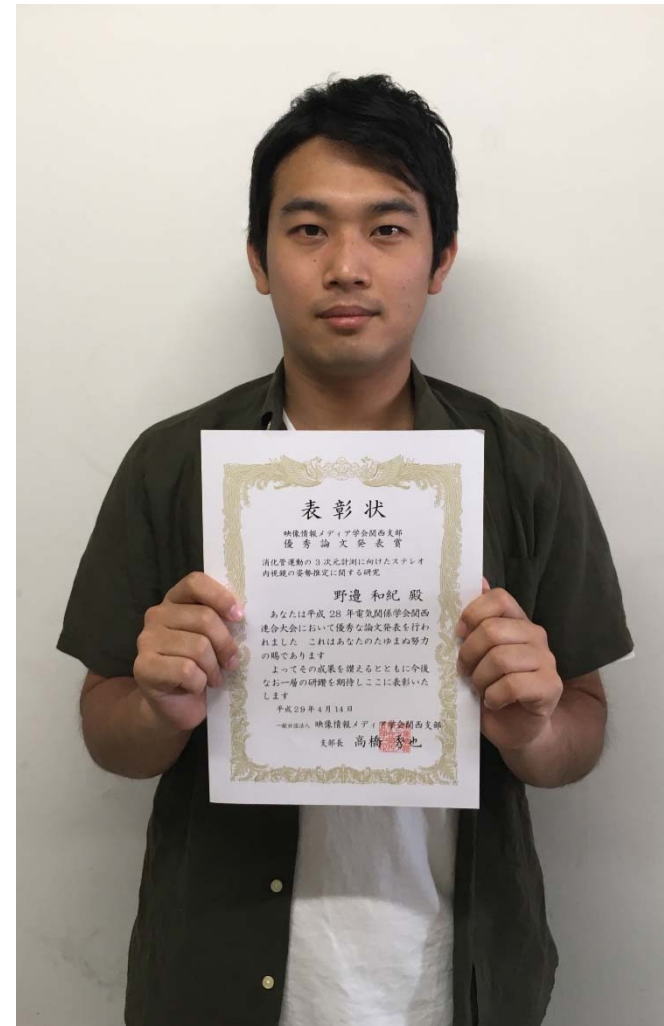 表彰状
映像情報メディア学会関西支部
優秀論文発表賞
消化管運動の3次元計測に向けたステレオ
内視鏡の姿勢推定に関する研究
野邉 和紀 殿
あなたは平成 28 年電気関係学会関西
連合大会において優秀な論文発表を行わ
れました これはあなたのたゆまぬ努力
の賜であります
よってその成果を讃えるとともに今後
なお一層の研鑽を期待しここに表彰いた
します
平成29年4月14日
一般社団法人 映像情報メディア学会関西支部
支部長 高橋 秀也